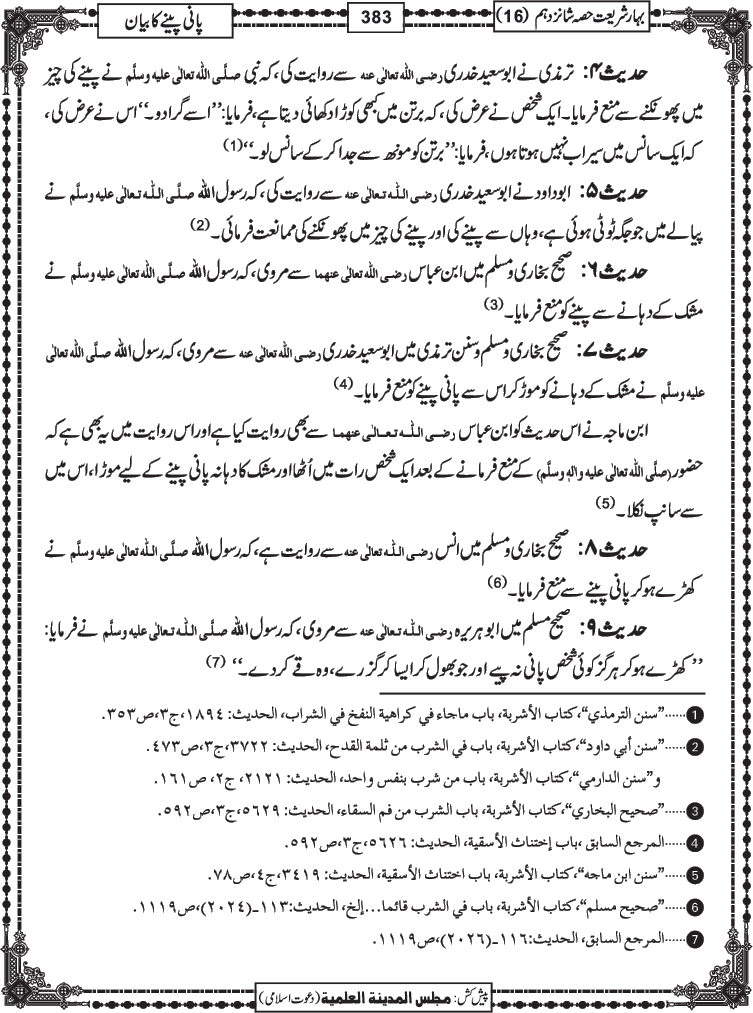 بہارِشریعت حصہ شانزدہم (16)
383
پانی پینے کا بیان
حدیث ۴: ترمذی نے ابوسعید خدری رضی اللہ تعالٰی عنہ سے روایت کی، کہ نبی صلَّی اللہ تعالٰی علیہ وسلَّم نے پینے کی چیز
میں پھونکنے سے منع فرمایا۔ ایک شخص نے عرض کی، کہ برتن میں کبھی کوڑا دکھائی دیتا ہے، فرمایا: ’’اسے گرا دو۔‘‘ اس نے عرض کی،
کہ ایک سانس میں سیراب نہیں ہوتا ہوں، فرمایا: ’’برتن کو مونھ سے جدا کر کے سانس لو۔‘‘(1)
حدیث ۵: ابوداود نے ابوسعید خدری رضی اللہ تعالٰی عنہ سے روایت کی، کہ رسول اللہ صلَّی اللہ تعالٰی علیہ وسلَّم نے
پیالے میں جو جگہ ٹوٹی ہوئی ہے، وہاں سے پینے کی اور پینے کی چیز میں پھونکنے کی ممانعت فرمائی۔(2)
حدیث ۶: صحیح بخاری و مسلم میں ابن عباس رضی اللہ تعالٰی عنہما سے مروی، کہ رسول اللہ صلَّی اللہ تعالٰی علیہ وسلَّم نے
مشک کے دہانے سے پینے کو منع فرمایا۔(3)
حدیث ۷: صحیح بخاری و مسلم و سنن ترمذی میں ابوسعید خدری رضی اللہ تعالٰی عنہ سے مروی، کہ رسول اللہ صلَّی اللہ تعالٰی
علیہ وسلَّم نے مشک کے دہانے کو موڑ کر اس سے پانی پینے کو منع فرمایا۔(4)
ابن ماجہ نے اس حدیث کو ابن عباس رضی اللہ تعالٰی عنہما سے بھی روایت کیا ہے اور اس روایت میں یہ بھی ہے کہ
حضور (صلَّی اللہ تعالٰی علیہ واٰلہٖ وسلَّم) کے منع فرمانے کے بعد ایک شخص رات میں اُٹھا اور مشک کا دہانہ پانی پینے کے لیے موڑا، اس میں
سے سانپ نکلا۔(5)
حدیث ۸: صحیح بخاری و مسلم میں انس رضی اللہ تعالٰی عنہ سے روایت ہے، کہ رسول اللہ صلَّی اللہ تعالٰی علیہ وسلَّم نے
کھڑے ہو کر پانی پینے سے منع فرمایا۔(6)
حدیث ۹: صحیح مسلم میں ابوہریرہ رضی اللہ تعالٰی عنہ سے مروی، کہ رسول اللہ صلَّی اللہ تعالٰی علیہ وسلَّم نے فرمایا:
’’کھڑے ہو کر ہرگز کوئی شخص پانی نہ پیے اور جو بھول کر ایسا کر گزرے، وہ قے کر دے۔‘‘(7)
1......”سنن الترمذي“،کتاب الأشربة، باب ماجاء في کراهية النفخ في الشراب، الحديث: ١٨٩٤،ج٣،ص٣٥٣.
2......”سنن أبي داود“،کتاب الأشربة، باب في الشرب من ثلمة القدح، الحديث: ٣٧٢٢،ج٣،ص٤٧٣.
و”سنن الدارمي“،کتاب الأشربة، باب من شرب بنفس واحد، الحديث: ٢١٢١، ج٢، ص١٦١.
3......”صحيح البخاري“،کتاب الأشربة، باب الشرب من فم السقاء، الحديث: ٥٦٢٩،ج٣،ص٥٩٢.
4......المرجع السابق ،باب إختناث الأسقية، الحديث: ٥٦٢٦،ج٣،ص٥٩٢.
5......”سنن ابن ماجه“،کتاب الأشربة، باب اختناث الأسقية، الحديث: ٣٤١٩،ج٤،ص٧٨.
6......”صحيح مسلم“،کتاب الأشربة، باب في الشرب قائما...إلخ، الحديث:١١٣ـ(٢٠٢٤)،ص١١١٩.
7......المرجع السابق، الحديث:١١٦ـ(٢٠٢٦)،ص١١١٩.
پیش کش: مجلس المدینة العلمیة (دعوت اسلامی)